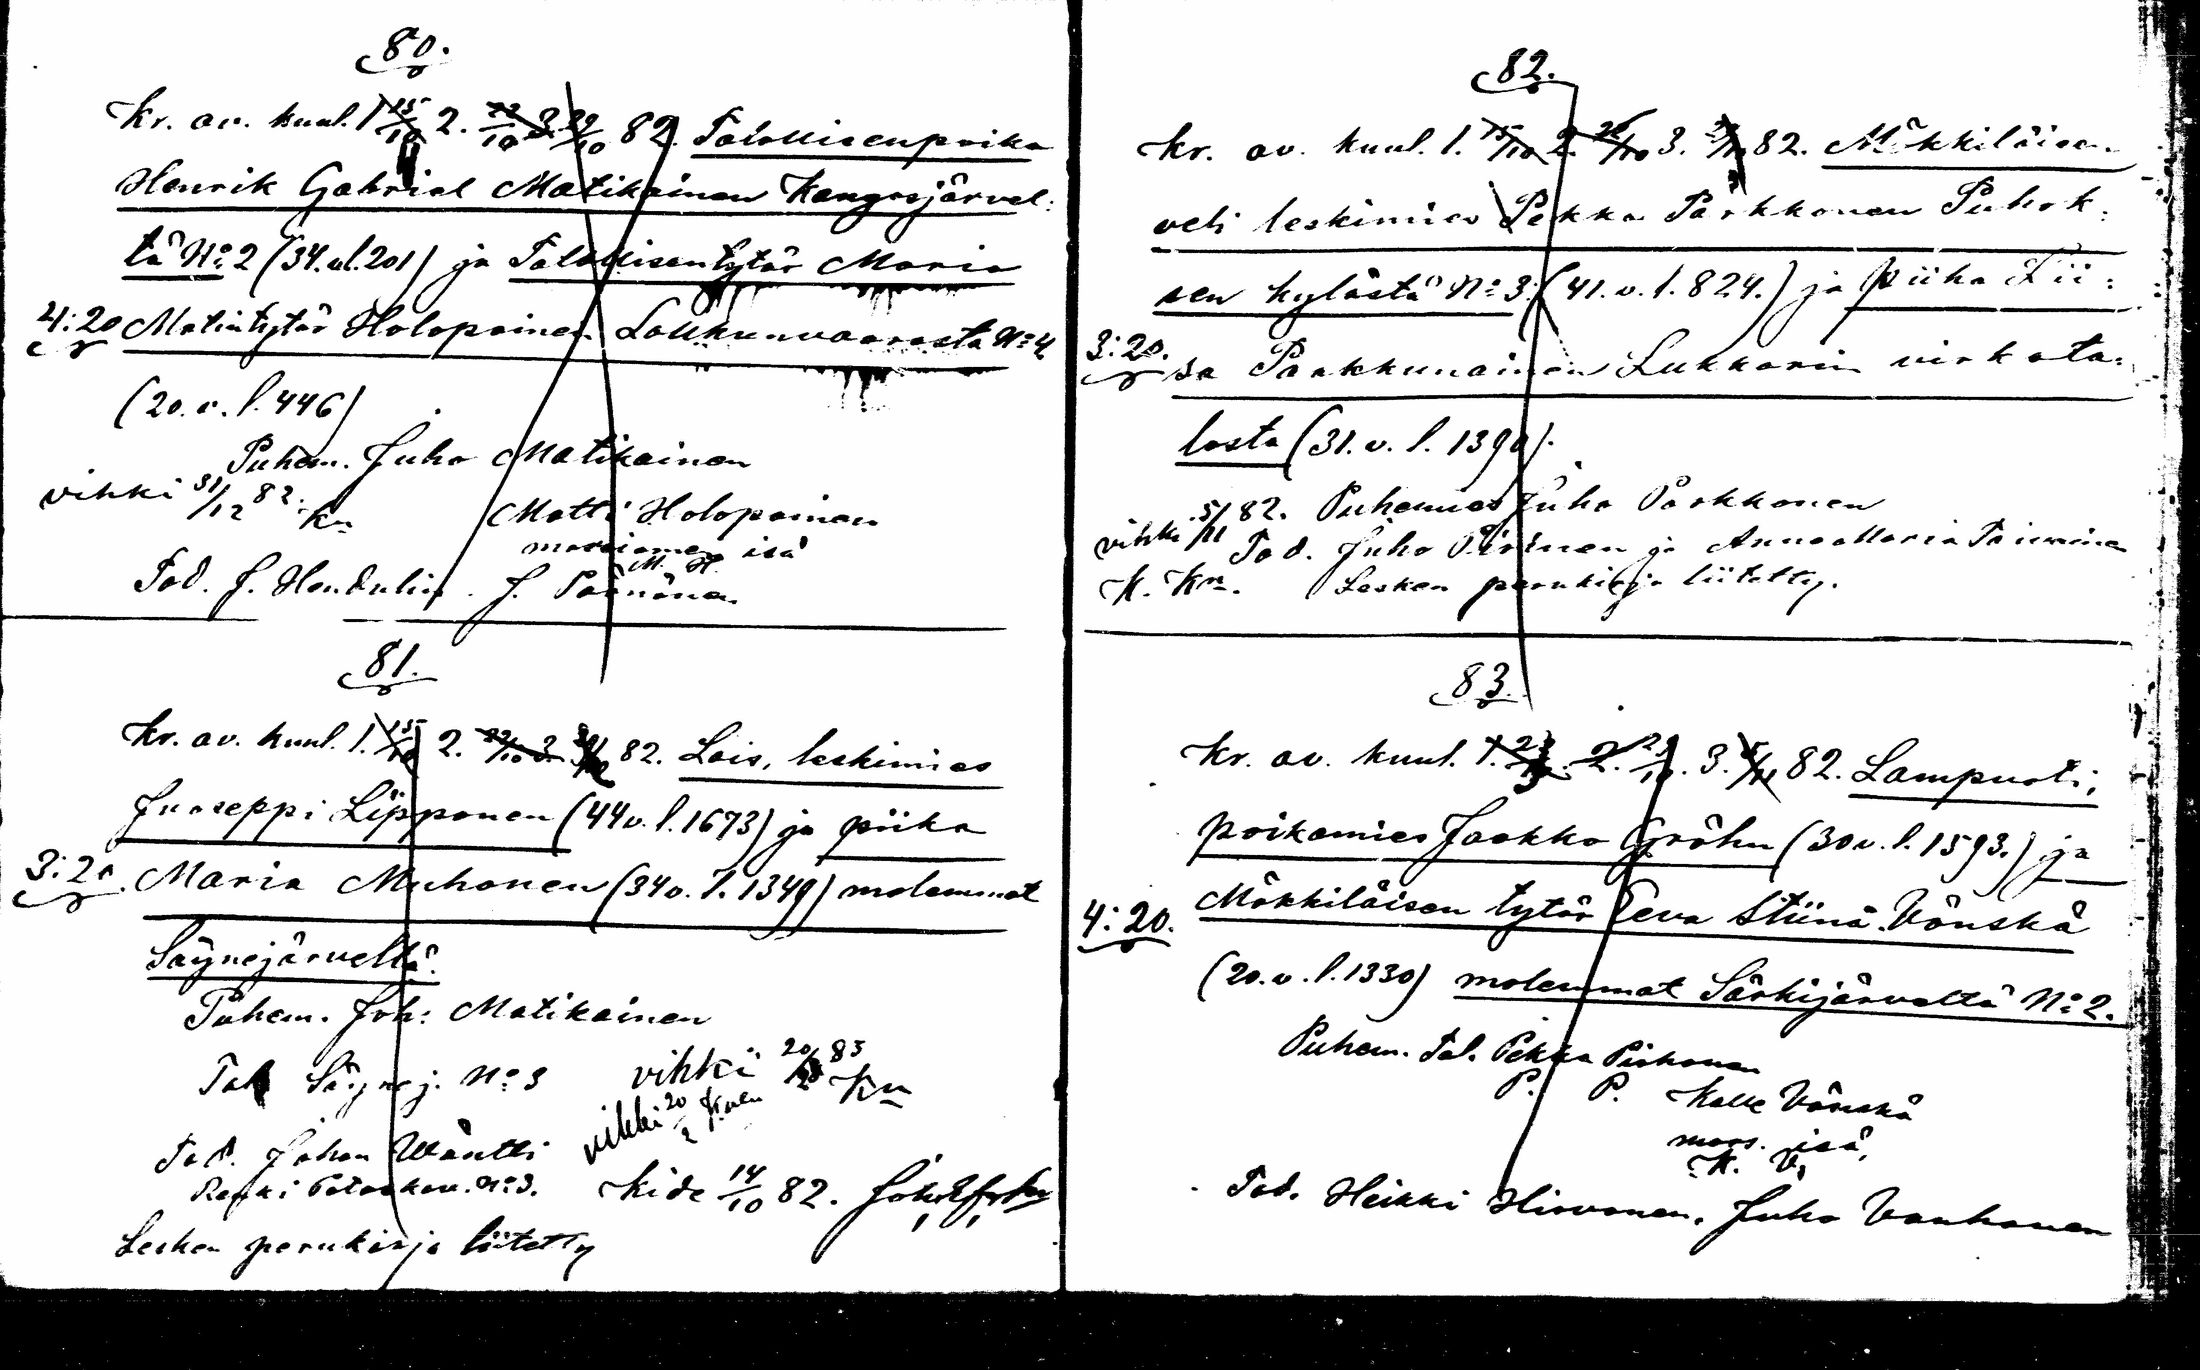 80.
Kr. av. kuul. 1. 15/10 2. 22/10 3. 29/10 82. Talollisenpoika
Henrik Gabriel Matikainen Kangasjärvel:
tä No 2 (34. v. l. 201) ja Talollisentytär Maria
4:20 Matintytär Holopainen Loukunvaarasta No 4
(20. v. l. 446)
Puhem. Juho Matikainen
vihki 31/12 82. Kn
Matti Holopainen
morsiamen isä
M. H.
Tod. J. Hendulin. J. Päänönen
81.
Kr. av. kuul. 1. 15/10 2. 22/10 3. 29/10 82. Lois, leskimies
Juoseppi Lipponen (44 v. l. 1673) ja piika
3:20. Maria Muhonen (34 v. l. 1349) molemmat
Säynejärveltä.
Puhem. Joh: Matikainen
Tal Säynej. No 3
vihki 20/2 83 Kn
vihki 20/2
Tod. Johan Wäntti
Renki No 3.
Kide 14/10 82.
Lesken perukirja liitetty
82.
Kr. av. kuul. 1. 15/10 2. 22/10 3. 29/10 82. Mökkiläisen
veli leskimies Pekka Parkkonen Puhok:
sen kylästä No 3. (41. v. l. 824.) ja piika Lii:
3:20. sa Parkkunainen Lukkarin virkata:
losta (31. v. l. 1390).
vihki 5/11 82. Puhemies Juho Parkkonen
Tod. Juho Pirinen ja Anna Maria Toivanen
K. Kn. Lesken perukirja liitetty.
83.
Kr. av. kuul. 1. 22/10. 2. 29/10. 3. 5/11 82. Lampuoti,
poikamies Jaakko Gröhn (30 v. l. 1593.) ja
4:20. Mökkiläisen tytär Eeva Stiina Vänskä
(20. v. l. 1330) molemmat Särkijärveltä No 2.
Puhem. Tal. Pekka Pirhonen
P. P. Kalle Vänskä
mors. isä,
K. V,
Tod. Heikki Hirvonen, Juho Vanhanen